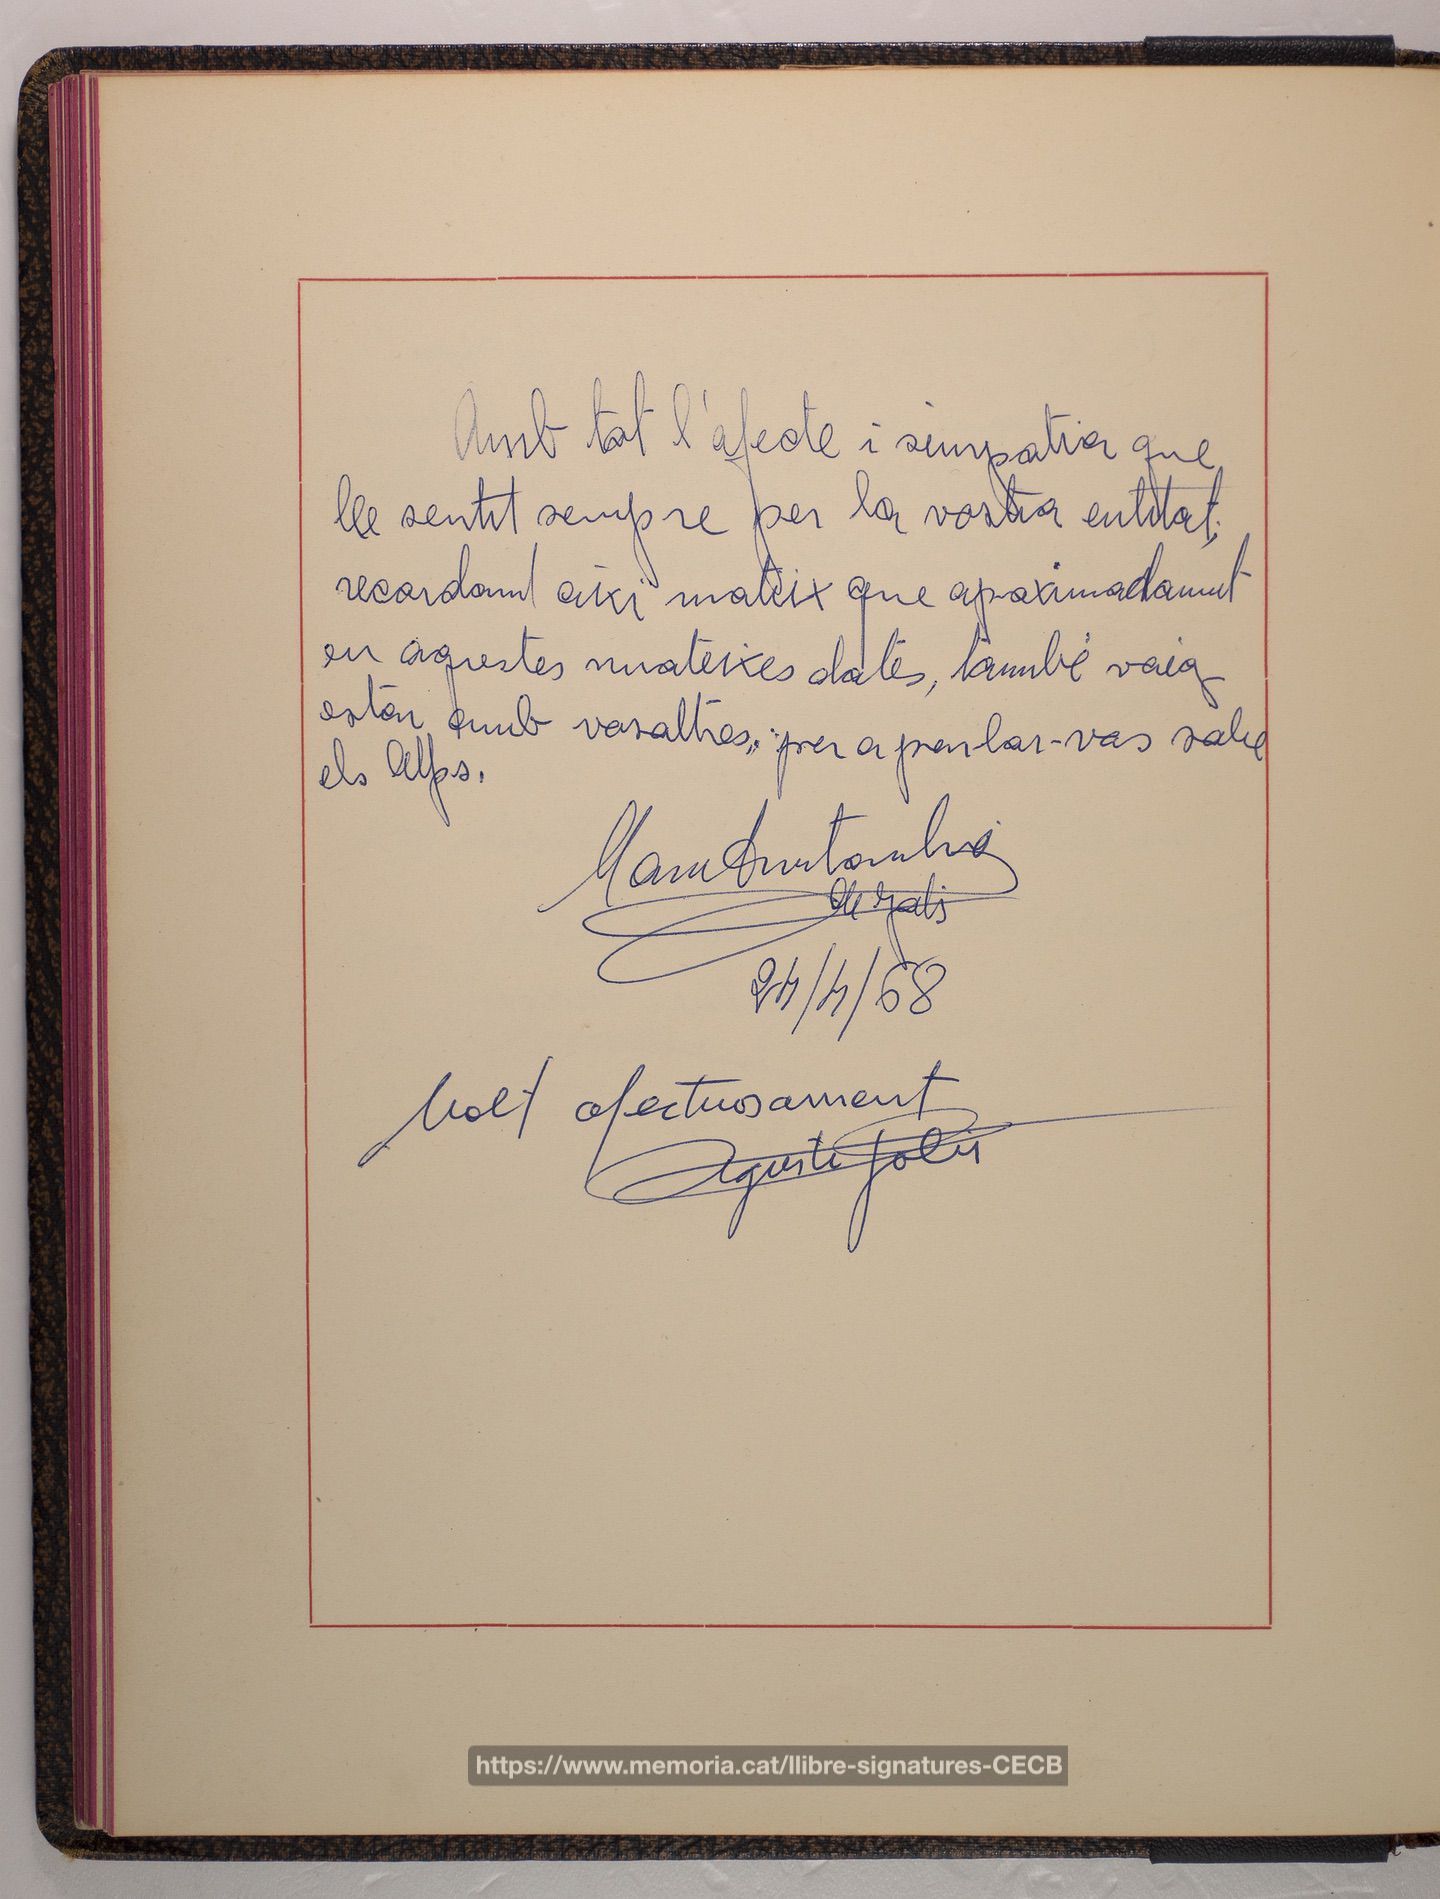 Amb tot l'afecte i simpatia que
he sentit sempre per la vostra entitat,
recordant aixi mateix que aproximadament
en aquestes mateixes dates, també vaig
estar amb vosaltres, per a parlar-vos sobre
els Alps.
24/4/68
Molt afectuosament
Agustí Jolis
https://www.memoria.cat/llibre-signatures-CECB